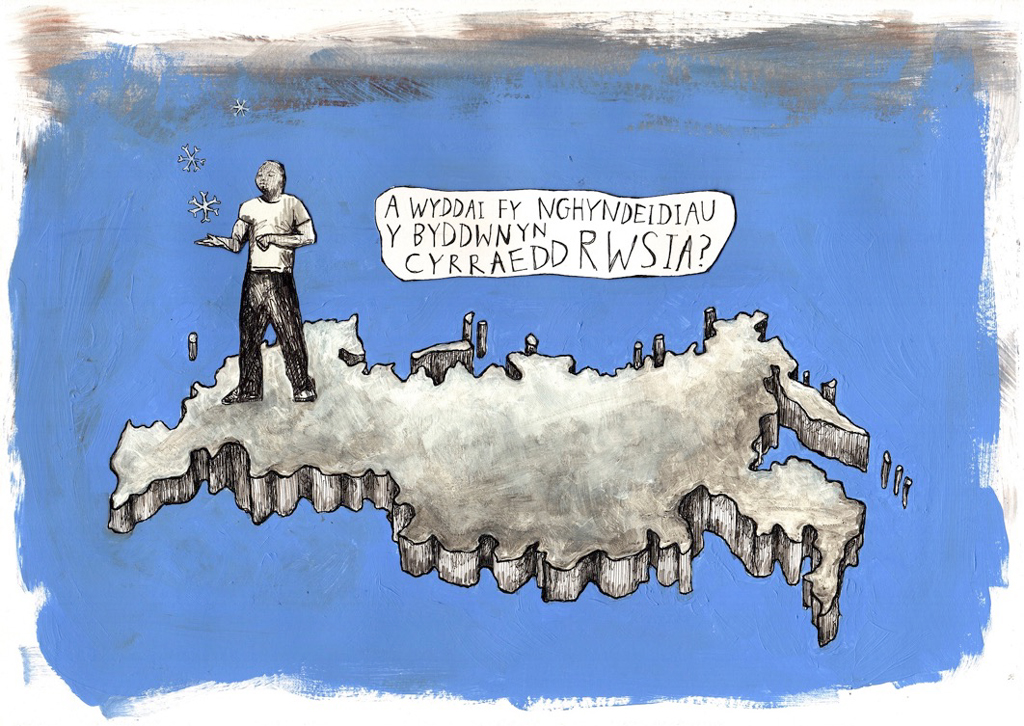 A WYDDAI FY NGHYNDEIDIAU
Y BYDDWNYN
CYRRAEDD RWSIA?